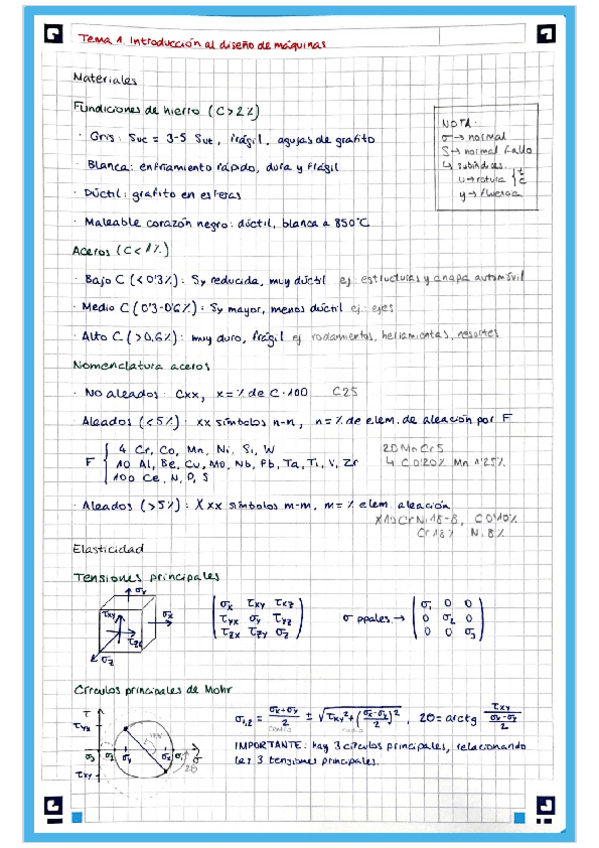 Tema 1. Introducción al diseño de máquinas
Materiales
Fundiciones de hierro (C>2%)
· Gris: Suc = 3-5 Sut, frágil, agujas de grafito
· Blanca: enfriamiento rápido, dura y frágil
· Dúctil: grafito en esferas
· Maleable corazón negro: dúctil, blanca a 850°C
NOTA:
σ → normal
S → normal fallo
↳ subíndices:
u → rotura { t c
y → fluencia
Aceros (C<1%)
· Bajo C (<0'3%): Sy reducida, muy dúctil ej: estructuras y chapa automóvil
· Medio C (0'3-0'6%): Sy mayor, menos dúctil ej: ejes
· Alto C (>0,6%): muy duro, frágil ej rodamientos, herramientas, resortes
Nomenclatura aceros
· No aleados: Cxx, x = % de C·100 C25
· Aleados (<5%): xx símbolos n-n, n = % de elem. de aleación por F
F { 4 Cr, Co, Mn, Ni, Si, W
10 Al, Be, Cu, Mo, Nb, Pb, Ta, Ti, V, Zr
100 Ce, N, P, S
20MnCr5
C 0'20% Mn 1'25%
· Aleados (>5%): Xxx símbolos m-m, m = % elem. aleación
X10CrNi18-8, C 0'10%
Cr 18% Ni 8%
Elasticidad
Tensiones principales
σy
τxy
σx
σz
( σx τxy τxz
τyx σy τyz
τzx τzy σz )
σ ppales → ( σ1 0 0
0 σ2 0
0 0 σ3 )
Círculos principales de Mohr
τ
τyx
σ3 σ2 σy σx σ1 σ
τxy
2θ
σ1,2 = (σx+σy)/2 ± √(τxy² + ((σx-σy)/2)²), 2θ = arctg τxy/((σx-σy)/2)
centro radio
IMPORTANTE: hay 3 círculos principales, relacionando
las 3 tensiones principales.